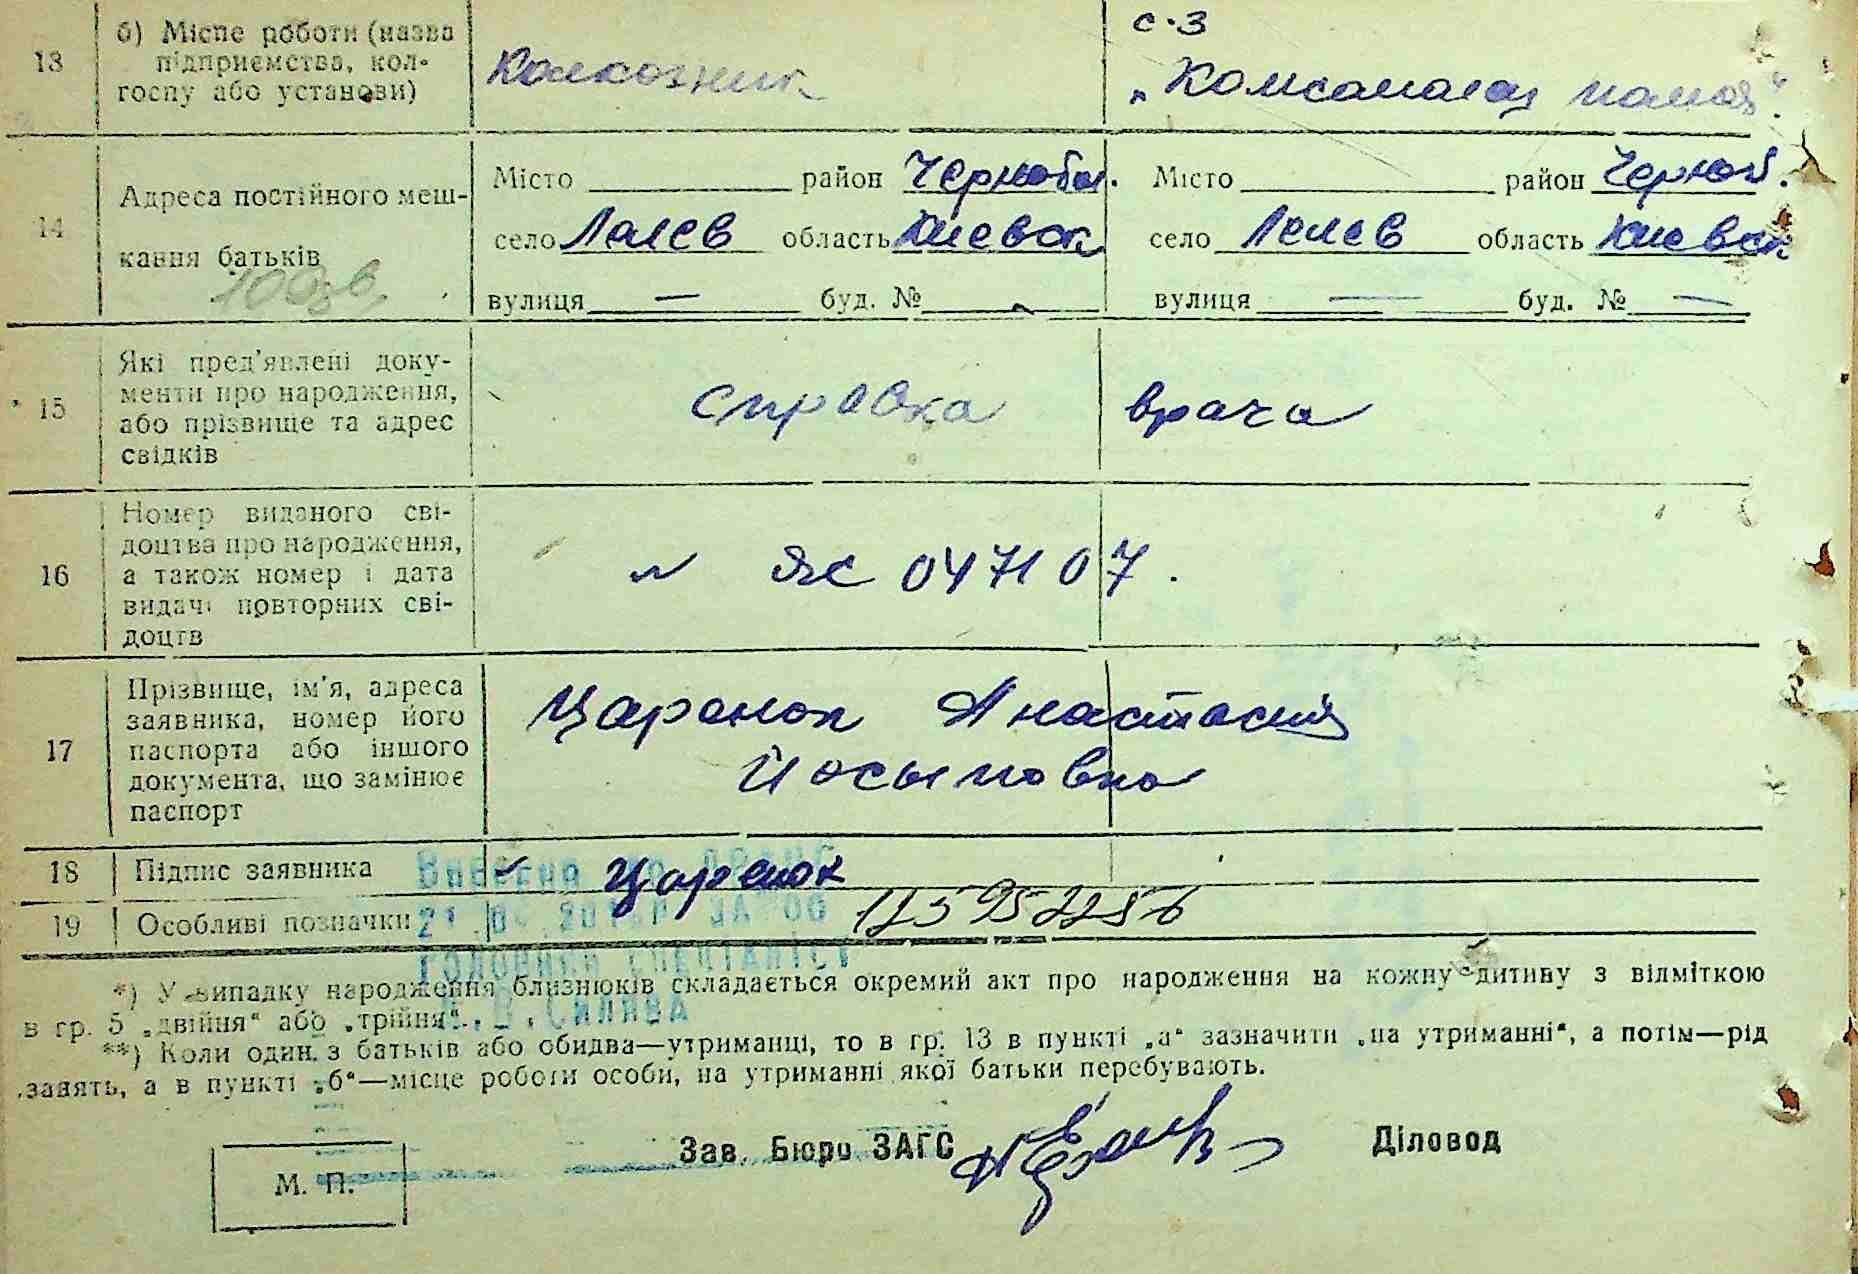 с-з
13 б) Місце роботи (назва підприємства, колгоспу або установи) Колхозник „Комсомолец
14 Адреса постійного мешкання батьків
Місто район Чернобы. Місто район Черноб.
село Лелев область Киевск село Лелев область Киевск
вулиця — буд. № вулиця — буд. № —
15 Які пред'явлені документи про народження, або прізвище та адрес свідків справка врача
16 Номер виданого свідоцтва про народження, а також номер і дата видачі повторних свідоцтв ЯС 047107.
17 Прізвище, ім'я, адреса заявника, номер його паспорта або іншого документа, що замінює паспорт Царенок Анастасия
Йосыповна
18 Підпис заявника Царенок
19 Особливі позначки
Внесено до ДРАЦС
головний спеціаліст
Силява
*) У випадку народження близнюків складається окремий акт про народження на кожну дитину з відміткою
в гр. 5 „двійня“ або „трійня“.
**) Коли один з батьків або обидва—утриманці, то в гр. 13 в пункті „а“ зазначити „на утриманні“, а потім—рід
занять, а в пункті „б“—місце роботи особи, на утриманні якої батьки перебувають.
Зав. Бюро ЗАГС Діловод
М. П.